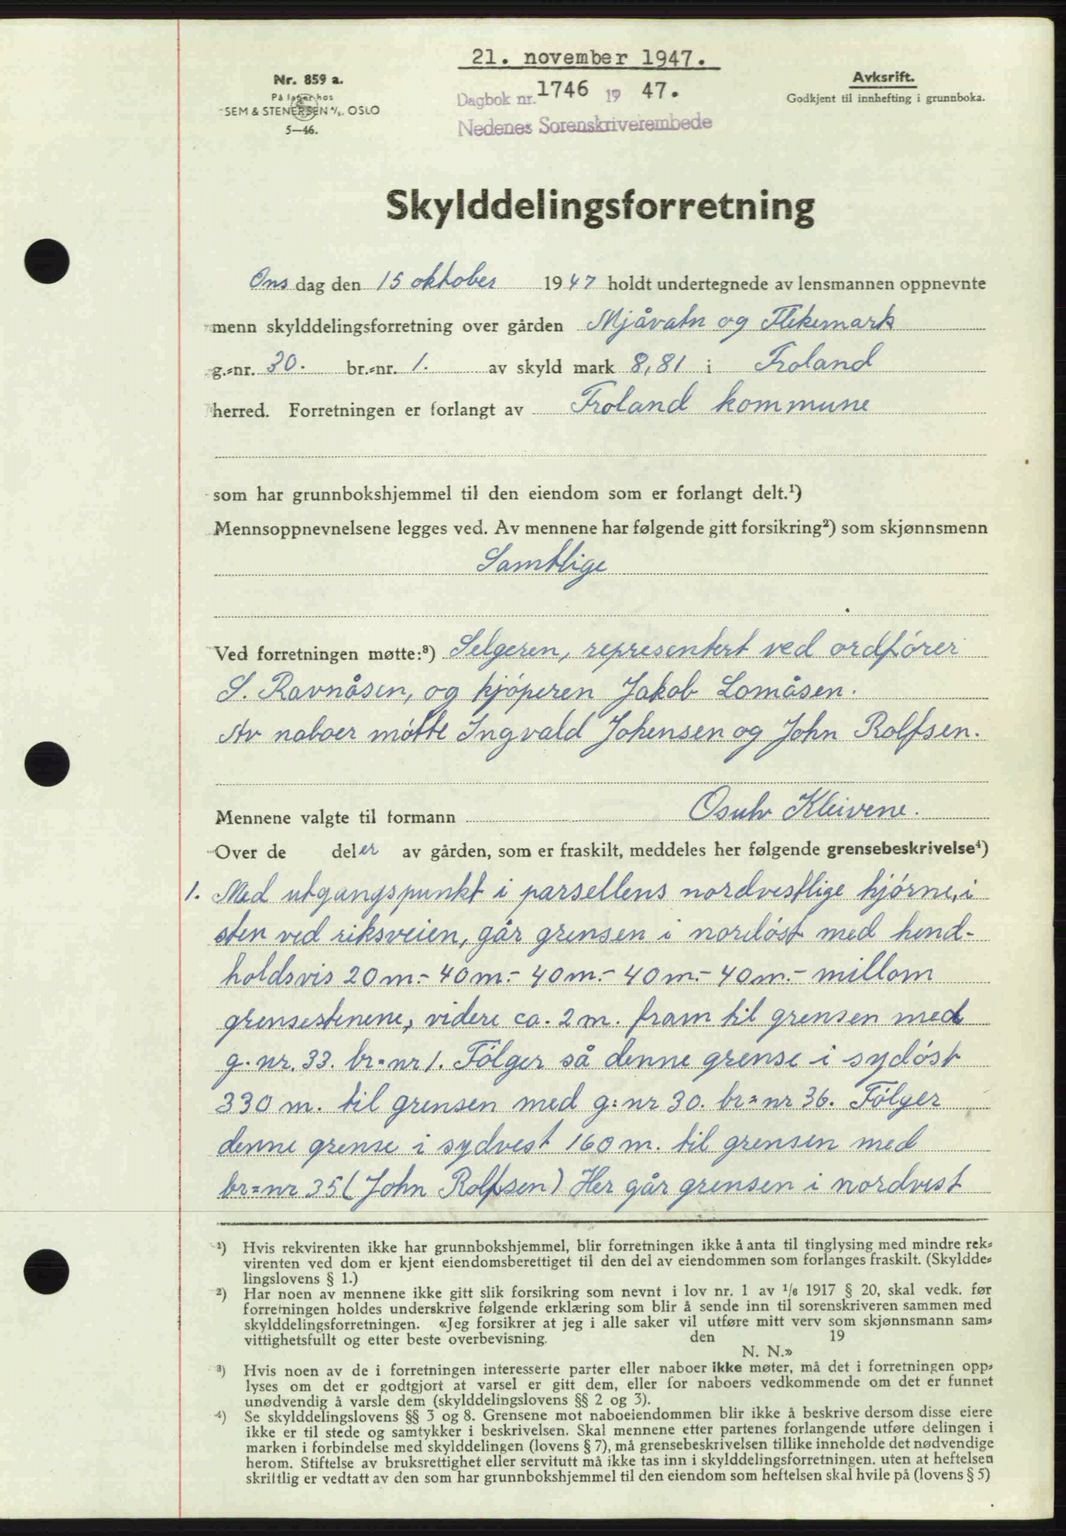 21. november 1947.
Nr. 859 a.
På lager hos
SEM & STENERSEN A/S. OSLO
5—46.
Dagbok nr. 1746 19 47.
Nedenes Sorenskriverembede
Avkskrift.
Godkjent til innhefting i grunnboka.
Skylddelingsforretning
Ons dag den 15 oktober 1947 holdt undertegnede av lensmannen oppnevnte
menn skylddelingsforretning over gården Mjåvatn og Flekemark
g.=nr. 30. br.=nr. 1. av skyld mark 8,81 i Froland
herred. Forretningen er forlangt av Froland kommune
som har grunnbokshjemmel til den eiendom som er forlangt delt.¹)
Mennsoppnevnelsene legges ved. Av mennene har følgende gitt forsikring²) som skjønnsmenn
Samtlige
Ved forretningen møtte:³) Selgeren, representert ved ordfører
S. Ravnåsen, og kjøperen Jakob Lomåsen.
Av naboer møtte Ingvald Johensen og John Rolfsen.
Mennene valgte til formann Osulv Kleivene.
Over de deler av gården, som er fraskilt, meddeles her følgende grensebeskrivelse⁴)
1. Med utgangspunkt i parsellens nordvestlige hjørne, i
sten ved riksveien, går grensen i nordøst med hend-
holdsvis 20 m.- 40 m.- 40 m.- 40 m.- 40 m.- millom
grensestenene, videre ca. 2 m. fram til grensen med
g. nr. 33. br=nr 1. Følger så denne grense i sydøst
330 m. til grensen med g=nr 30. br=nr 36. Følger
denne grense i sydvest 160 m. til grensen med
br=nr 35 (John Rolfsen) Her går grensen i nordvest
¹) Hvis rekvirenten ikke har grunnbokshjemmel, blir forretningen ikke å anta til tinglysing med mindre rek=
virenten ved dom er kjent eiendomsberettiget til den del av eiendommen som forlanges fraskilt. (Skyldde=
lingslovens § 1.)
²) Har noen av mennene ikke gitt slik forsikring som nevnt i lov nr. 1 av 1/6 1917 § 20, skal vedk. før
forretningen holdes underskrive følgende erklæring som blir å sende inn til sorenskriveren sammen med
skylddelingsforretningen. «Jeg forsikrer at jeg i alle saker vil utføre mitt verv som skjønnsmann sam=
vittighetsfullt og etter beste overbevisning. den 19
N. N.»
³) Hvis noen av de i forretningen interesserte parter eller naboer ikke møter, må det i forretningen opp=
lyses om det er godtgjort at varsel er gitt dem, eller for naboers vedkommende om det er funnet
unødvendig å varsle dem (skylddelingslovens §§ 2 og 3).
⁴) Se skylddelingslovens §§ 3 og 8. Grensene mot naboeiendommen blir ikke å beskrive dersom disse eiere
ikke er til stede og samtykker i beskrivelsen. Skal mennene etter partenes forlangende utføre delingen i
marken i forbindelse med skylddelingen (lovens § 7), må grensebeskrivelsen tillike inneholde det nødvendige
herom. Stiftelse av bruksrettighet eller servitutt må ikke tas inn i skylddelingsforretningen. uten at heftelsen
skriftlig er vedtatt av den som har grunnbokshjemmel til den eiendom som heftelsen skal hvile på (lovens § 5)